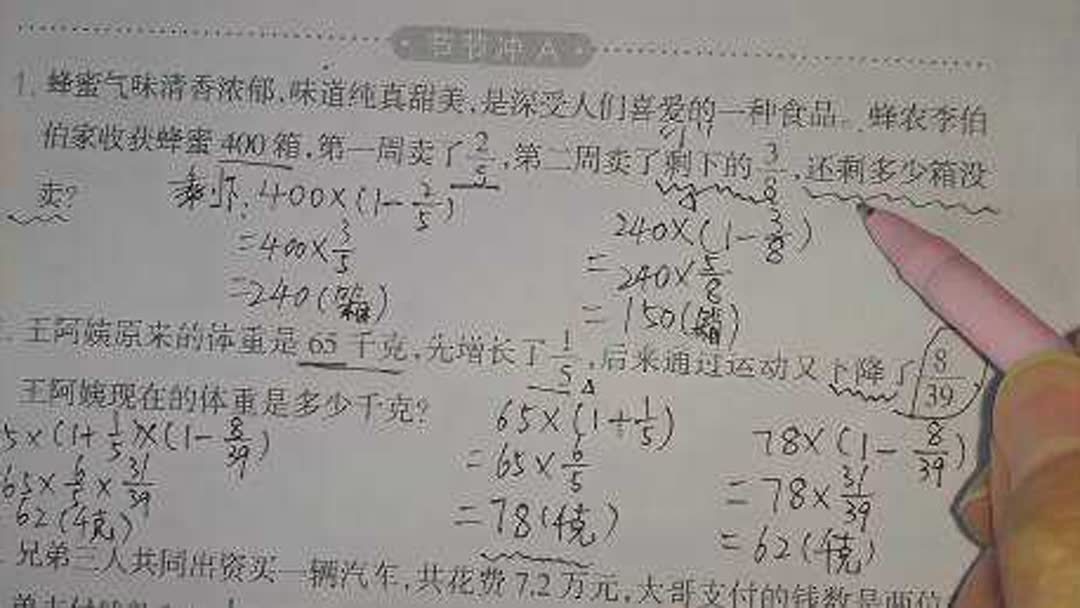 节节冲 A
1. 蜂蜜气味清香浓郁,味道纯真甜美,是深受人们喜爱的一种食品。蜂农李伯
伯家收获蜂蜜 400 箱,第一周卖了 2/5,第二周卖了剩下的 3/8,还剩多少箱没
卖?
剩下: 400×(1-2/5)
=400×3/5
=240(箱)
240×(1-3/8)
=240×5/8
=150(箱)
王阿姨原来的体重是 65 千克,先增长了 1/5,后来通过运动又下降了 8/39,
王阿姨现在的体重是多少千克?
5×(1+1/5)×(1-8/39)
65×6/5×31/39
62(千克)
65×(1+1/5)
=65×6/5
=78(千克)
78×(1-8/39)
=78×31/39
=62(千克)
兄弟三人共同出资买一辆汽车,共花费 7.2 万元,大哥支付的钱数是两位